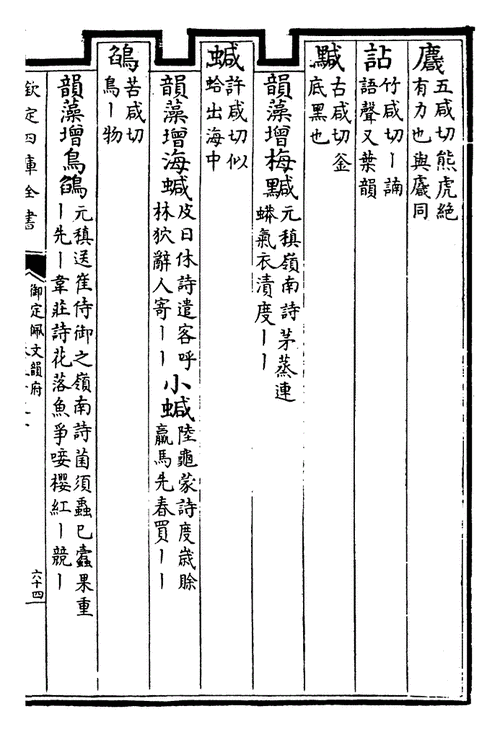 麙
五咸切熊虎絶
有力也與麙同
詀
竹咸切丨諵
語聲又葉韻
黬
古咸切釜
底黑也
韻藻增梅黬
元稹嶺南詩茅蒸連
蟒氣衣漬度丨丨
蝛
許咸切似
蛤出海中
韻藻增海蝛
皮日休詩遣客呼
林狖辭人寄丨丨
小蝛
陸龜蒙詩度歲賒
羸馬先春買丨丨
鵮
苦咸切
鳥丨物
韻藻增鳥鵮
元稹送崔侍御之嶺南詩菌須蟲已蠹果重
丨先丨韋莊詩花落魚爭唼櫻紅丨競丨
欽定四庫全書
御定佩文韻府
六十四